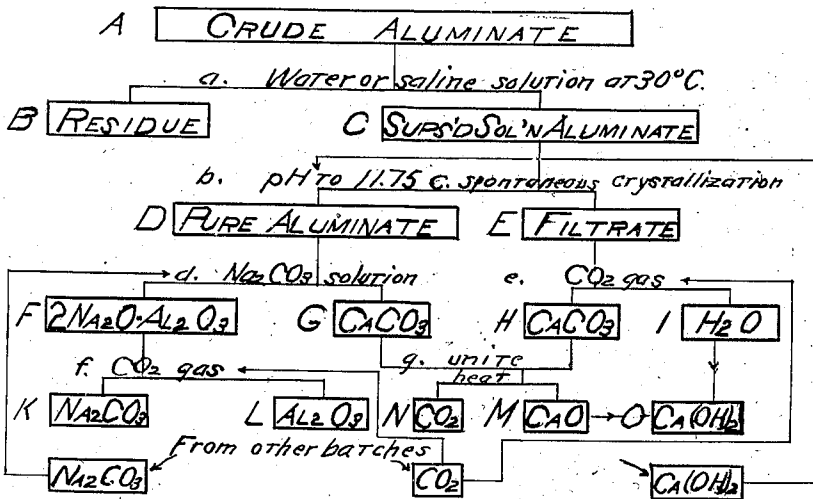 A CRUDE ALUMINATE
a. Water or saline solution at 30°C.
B RESIDUE C SUPS'D SOL'N ALUMINATE
b. pH to 11.75 c. spontaneous crystallization
D PURE ALUMINATE E FILTRATE
d. Na2CO3 solution e. CO2 gas
F 2NA2O·AL2O3 G CACO3 H CACO3 I H2O
f. CO2 gas g. unite
heat
K NA2CO3 L AL2O3 N CO2 M CAO O CA(OH)2
From other batches
NA2CO3 CO2 CA(OH)2